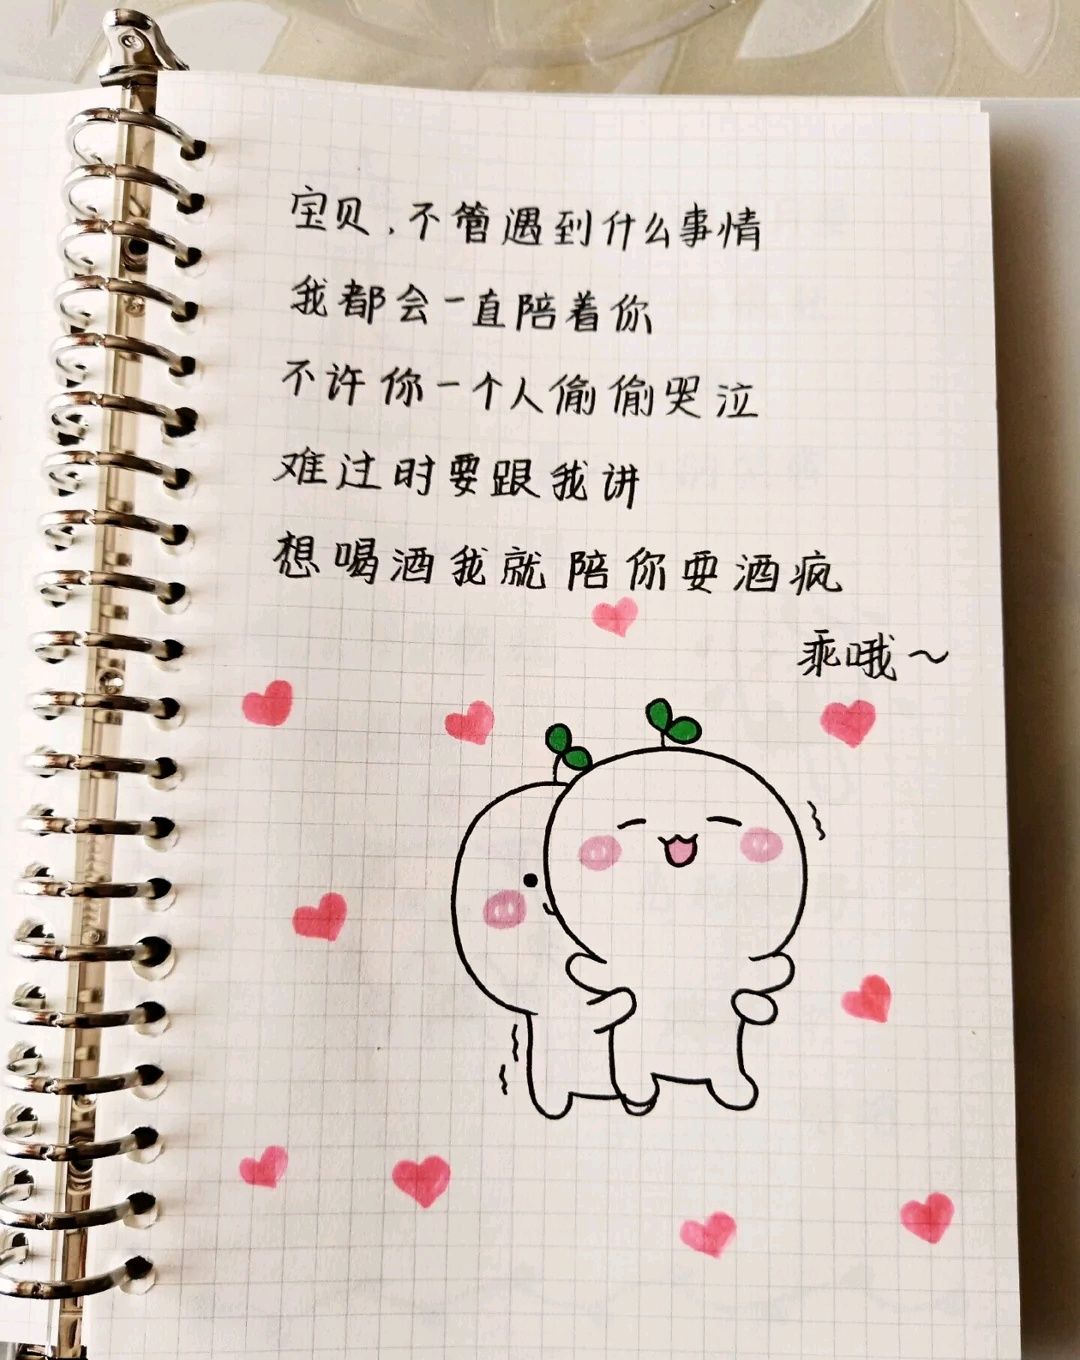 宝贝，不管遇到什么事情
我都会一直陪着你
不许你一个人偷偷哭泣
难过时要跟我讲
想喝酒我就陪你耍酒疯
乖哦～